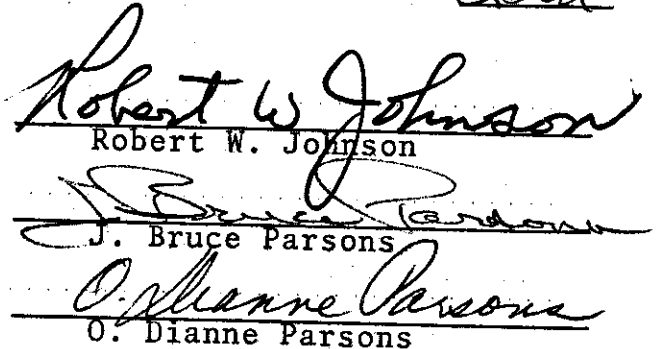 Robert W Johnson
Robert W. Johnson
J. Bruce Parsons
J. Bruce Parsons
O. Dianne Parsons
O. Dianne Parsons